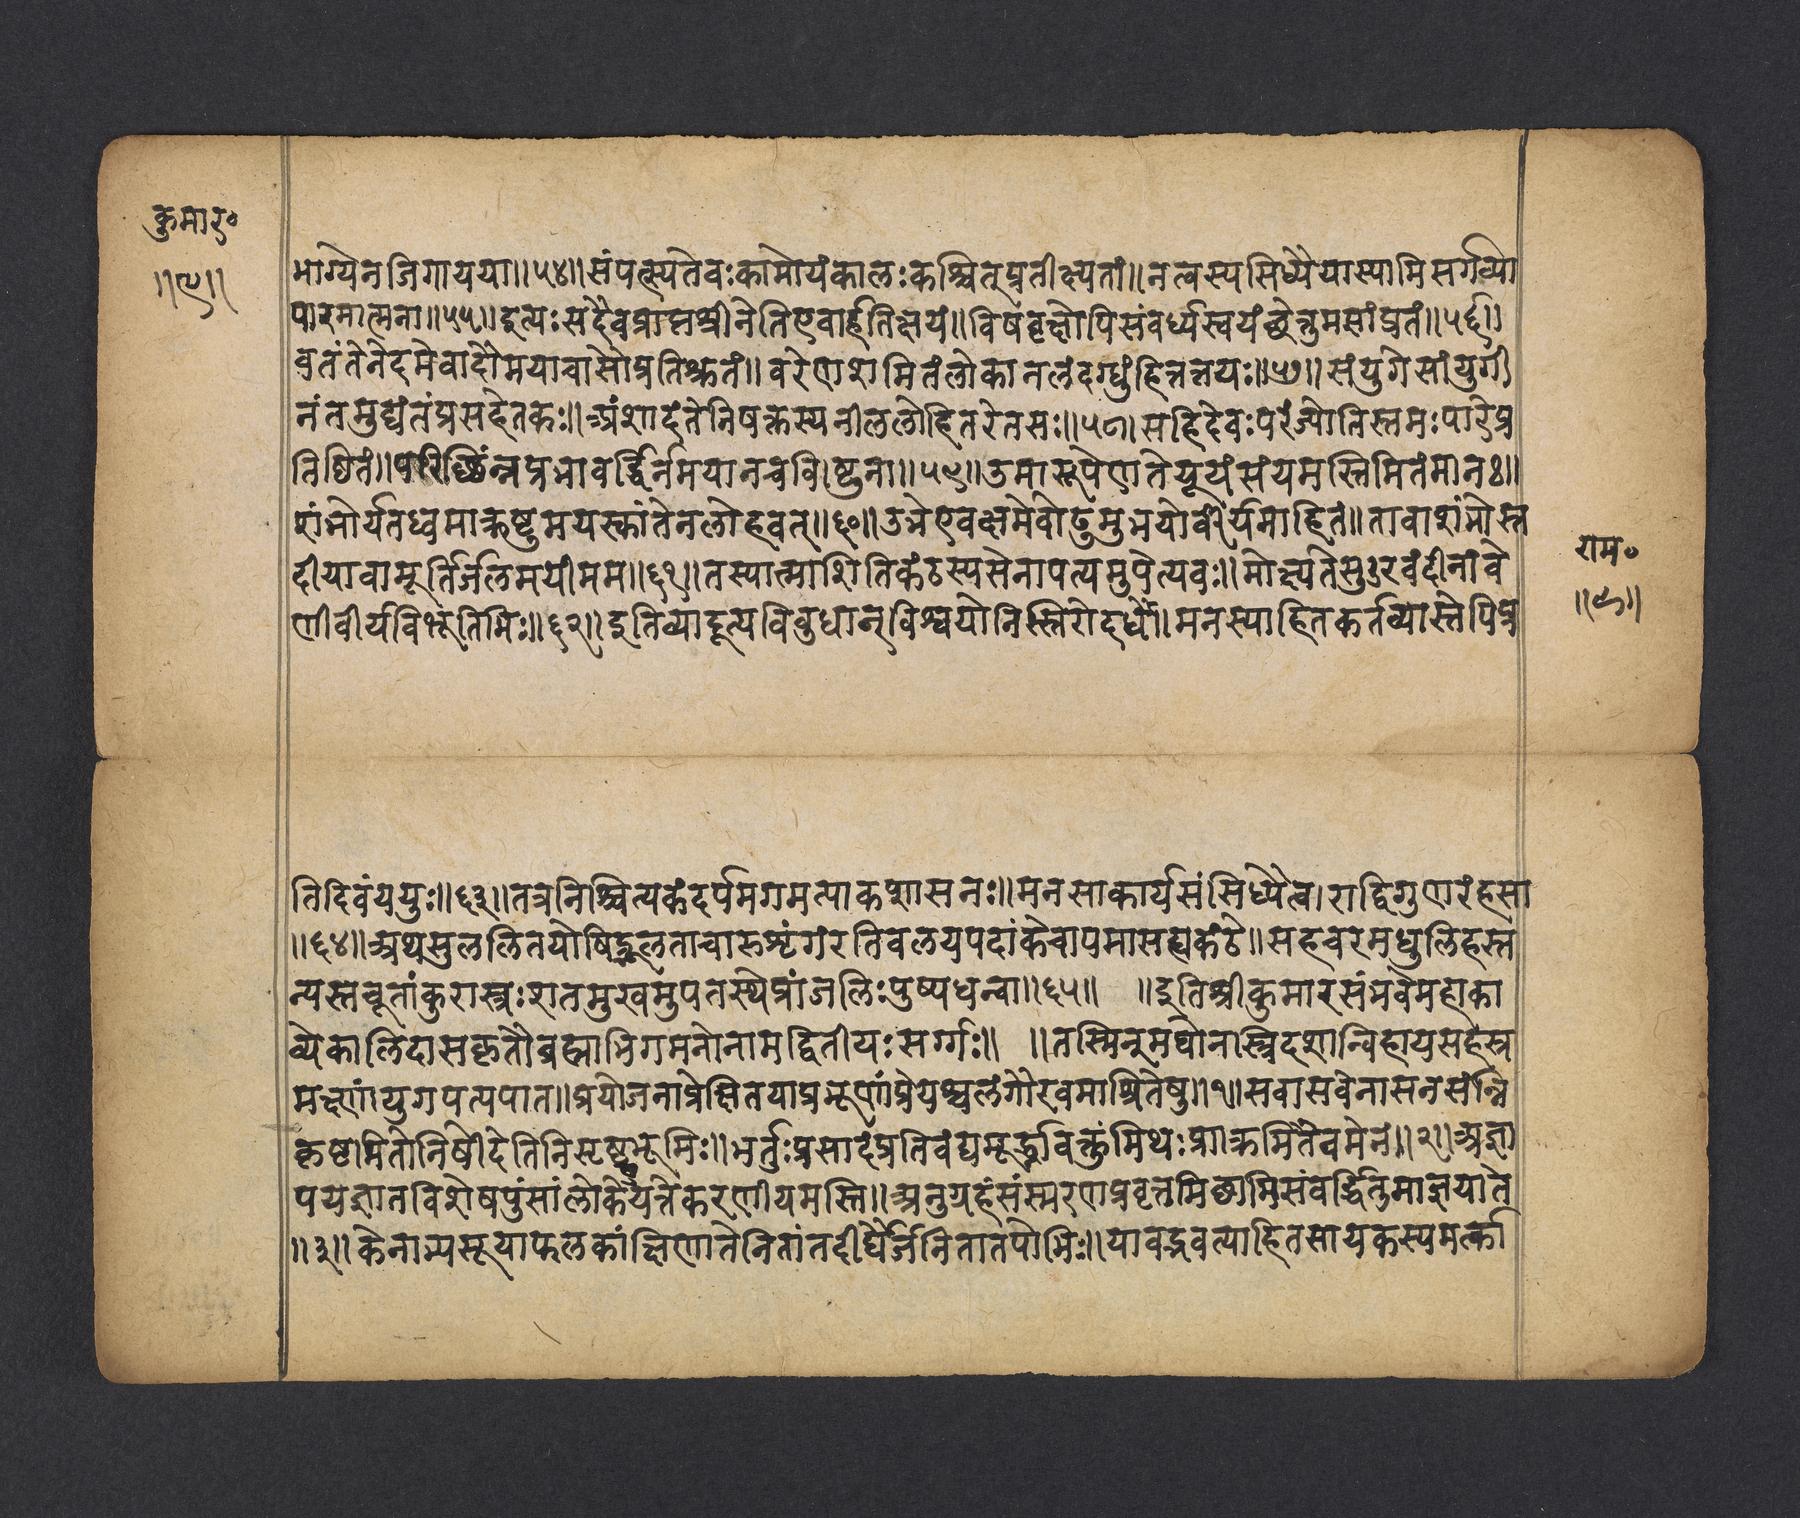 कुमार॰
॥९॥
भाग्येनजिगायया॥५४॥संपत्स्यतेवःकामोयंकालःकश्चित्प्रतीक्ष्यतां॥नत्वस्यसिध्यैयास्यामिसर्गव्या
पारमात्मना॥५५॥इत्यःसदैवप्राप्तश्रीनेतिएवार्हतिक्षयं॥विषवृक्षोपिसंवर्ध्यस्वयंच्छेत्तुमसांप्रतं॥५६॥
व्रतंतेनेदमेवादौमयाचासौप्रतिश्रुतं॥वरेणशमितंलोकानलंदग्धुंहितत्तपः॥५७॥संयुगेसांयुगी
नंतमुद्यंतंप्रसहेतकः॥अंशादृतेनिषक्तस्यनीललोहितरेतसः॥५८॥सहिदेवःपरंज्योतिस्तमःपारेप्र
तिष्ठितं॥परिच्छिंन्नप्रभावर्द्धिर्नमयानचविष्णुना॥५९॥उमारूपेणतेयूयंसंयमस्तिमितंमनः॥
शंभोर्यतध्वमाक्रष्टुमयस्कांतेनलोहवत्॥६०॥उभेएवक्षमेवोढुमुभयोर्वीर्यमाहितं॥तावाशंभोस्त
दीयावामूर्तिर्जलमयीमम॥६१॥तस्यात्माशितिकंठस्यसेनापत्यमुपेत्यवः॥मोक्ष्यतेसुरवंदीनांवे
णीवीर्यविभूतिभिः॥६२॥इतिव्याहृत्यविबुधान्विश्वयोनिस्तिरोदधे॥मनस्याहितकर्तव्यास्तेपिप्र
राम॰
॥९॥
तिदिवंययुः॥६३॥तत्रनिश्चित्यकंदर्पमगमत्पाकशासनः॥मनसाकार्यसंसिध्यैत्वराद्विगुणरंहसा
॥६४॥अथसुललितयोषिद्भ्रूलताचारुशृंगंरतिवलयपदांकेचापमासज्यकंठे॥सहचरमधुलिहस्त
न्यस्तचूतांकुरास्त्रःशतमुखमुपतस्थेप्रांजलिःपुष्पधन्वा॥६५॥ ॥इतिश्रीकुमारसंभवेमहाका
व्येकालिदासकृतौब्रह्माभिगमनोनामद्वितीयःसर्ग्गः॥ ॥तस्मिन्मघोनास्त्रिदशान्विहायसहस्त्र
मक्ष्णांयुगपत्पपात॥प्रयोजनाप्रेक्षितयाप्रभूणांप्रेयश्चलंगौरवमाश्रितेषु॥१॥सवासवेनासनसंन्नि
कृष्टमितोनिषीदेतिनिसृष्टभूमिः॥भर्तुःप्रसादंप्रतिवंद्यमूर्द्ध्नाविक्तुंमिथःप्राक्रमितैवमेनं॥२॥अज्ञा
पयज्ञातविशेषपुंसांलोकेषुयत्तेकरणीयमस्ति॥अनुग्रहंसंस्मरणप्रवृत्तमिछामिसंवर्द्धितुमाज्ञयाते
॥३॥केनाभ्यसूयाफलकांक्षिणातेनितांतदीर्घैर्जनितातपोभिः॥यावद्भवत्याहितसायकस्यमर्त्का